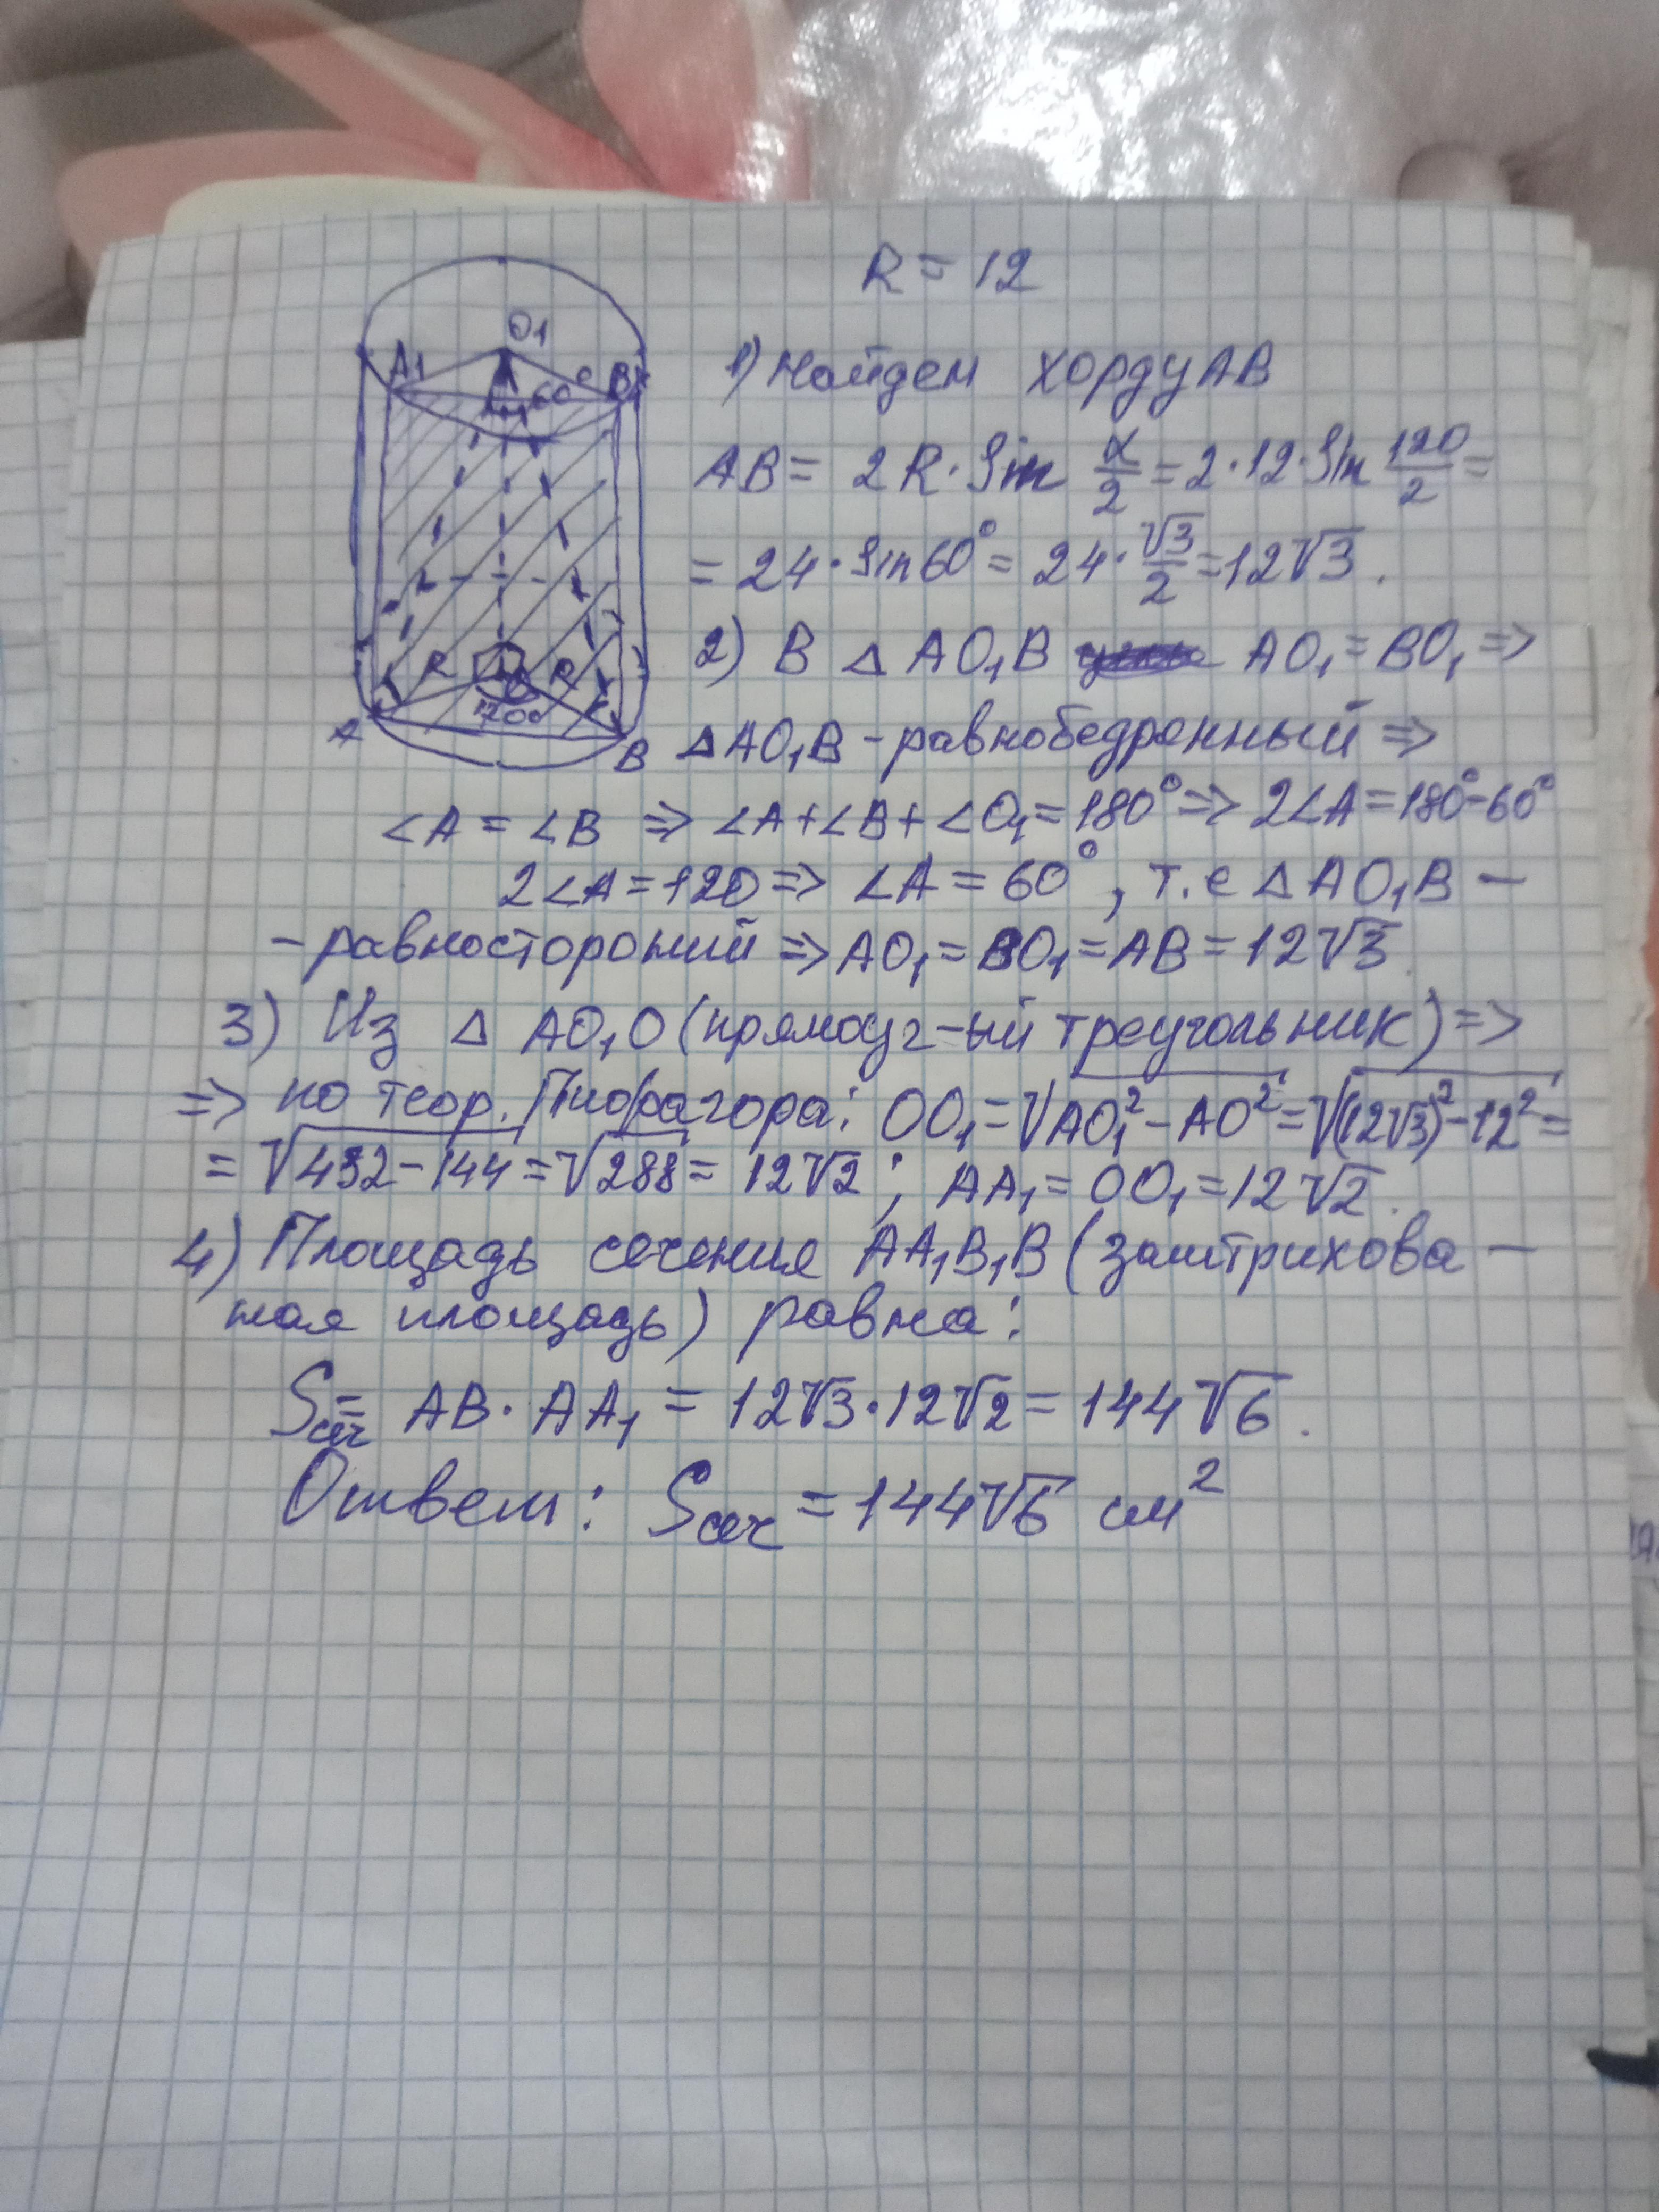 R = 12
O1
A1
B1
60°
1) Найдем хорду AB
AB = 2R · Sin α/2 = 2 · 12 · Sin 120/2 =
= 24 · Sin 60° = 24 · √3/2 = 12√3.
R
R
120°
A
B
2) В △ AO₁B AO₁ = BO₁ =>
△ AO₁B - равнобедренный =>
∠A = ∠B => ∠A + ∠B + ∠O₁ = 180° => 2∠A = 180° - 60°
2∠A = 120 => ∠A = 60°, т.е △ AO₁B -
- равносторонний => AO₁ = BO₁ = AB = 12√3.
3) Из △ AO₁O (прямоуг-ый треугольник) =>
=> по теор. Пифагора: OO₁ = √AO₁² - AO² = √(12√3)² - 12² =
= √432 - 144 = √288 = 12√2 ; AA₁ = OO₁ = 12√2.
4) Площадь сечения AA₁B₁B (заштрихова -
ная площадь) равна:
Sсеч = AB · AA₁ = 12√3 · 12√2 = 144√6.
Ответ: Sсеч = 144√6 см²